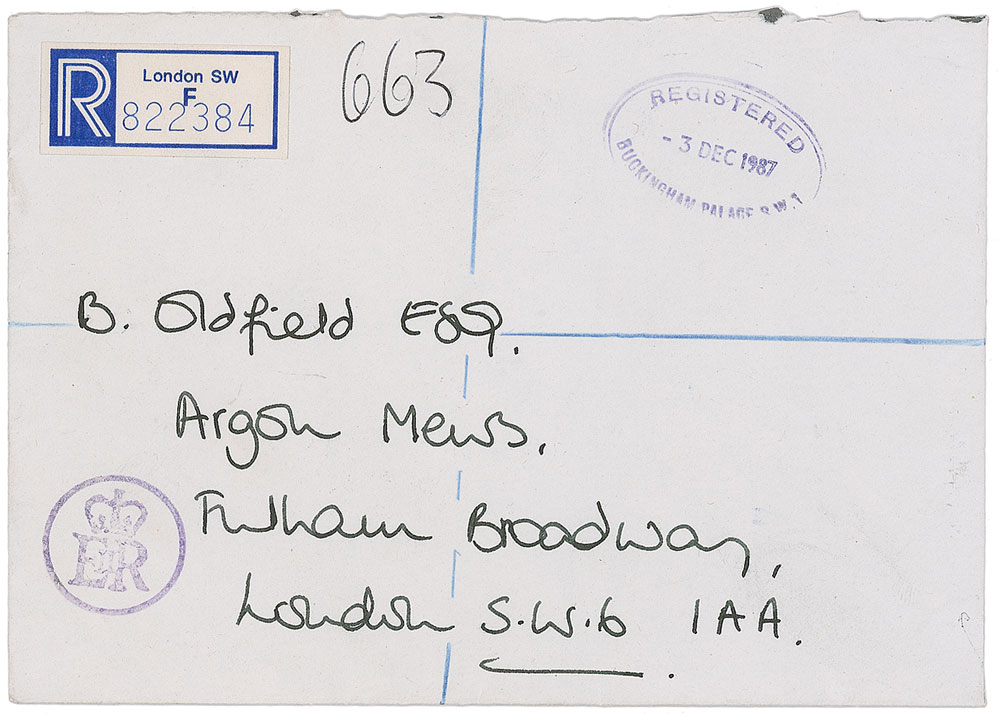 R
London SW
F
822384
663
REGISTERED
- 3 DEC 1987
BUCKINGHAM PALACE S.W.1
B. Oldfield Esq.
Argon Mews,
Fulham Broadway,
London S.W.6 1AA.
EIIR